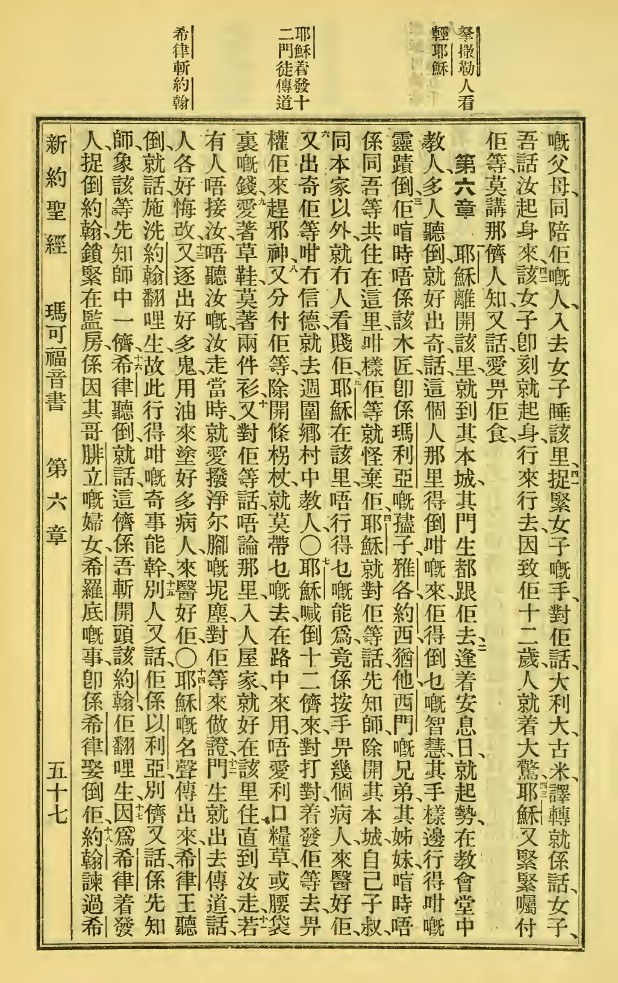 拏撒勒人看
輕耶穌
耶穌着發十
二門徒傳道
希律斬約翰
嘅父母同陪佢嘅人入去女子睡該里四一捉緊女子嘅手對佢話大利大古米譯轉就係話女子
吾話汝起身來四二該女子卽刻就起身行來行去因致佢十二歲人就着大驚四三耶穌又緊緊囑付
佢等莫講那儕人知又話愛畀佢食
第六章 耶穌離開該里就到其本城其門生都跟佢去二逢着安息日就起勢在教會堂中
教人多人聽倒就好出奇話這個人那里得倒咁嘅來佢得倒乜嘅智慧其手樣邊行得咁嘅
靈蹟倒三佢喧時唔係該木匠卽係瑪利亞嘅孻子雅各約西猶他西門嘅兄弟其姊妹喧時唔
係同吾等共住在這里咁樣佢等就怪棄佢四耶穌就對佢等話先知師除開其本城自己子叔
同本家以外就冇人看賤佢五耶穌在該里唔行得乜嘅能爲竟係按手畀幾個病人來醫好佢
六又出奇佢等咁冇信德就去週圍鄉村中教人〇七耶穌喊倒十二儕來對打對着發佢等去畀
權佢來趕邪神八又分付佢等除開條柺杖就莫帶乜嘅去在路中來用唔愛利口糧草或腰袋
裏嘅錢九愛著草鞋莫著兩件衫十又對佢等話唔論那里入人屋家就好在該里住直到汝走十一若
有人唔接汝唔聽汝嘅汝走當時就愛撥淨尔腳嘅坭塵對佢等來做證十二門生就出去傳道話
人各好悔改十三又逐出好多鬼用油來塗好多病人來醫好佢〇十四耶穌嘅名聲傳出來希律王聽
倒就話施洗約翰翻哩生故此行得咁嘅奇事能幹十五別人又話佢係以利亞別儕又話係先知
師象該等先知師中一儕十六希律聽倒就話這儕係吾斬開頭該約翰佢翻哩生十七因爲希律着發
人捉倒約翰鎖緊在監房係因其哥腓立嘅婦女希羅底嘅事卽係希律娶倒佢十八約翰諫過希
新約聖經 瑪可福音書 第六章 五十七